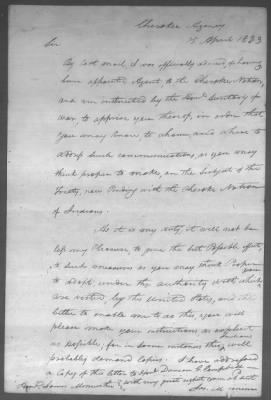 Cherokee Agency
15 April 1823
Sir
By last mail, I was officially advised of having
been appointed Agent to the Cherokee Nation,
and am instructed by the Honl. Secretary of
War to apprise you thereof, in order that
you may know to whom, and where to
address such communications, as you may
think proper to make, on the Subject of the
Treaty, now Pending with the Cherokee Nation
of Indians.
As it is my duty, it will not be
less my Pleasure, to give the best Possible effect,
to such measures as you may think Proper
to adopt under the authority with which you
are vested, by the United States, and the
better to enable me to do this you will
please make your instructions as explicit
as possible, for in some instances the Indians will
probably demand Copies. I have addressed
a Copy of this letter to Honl. Duncan G. Campbell
with my great respect
Jos. McMinn